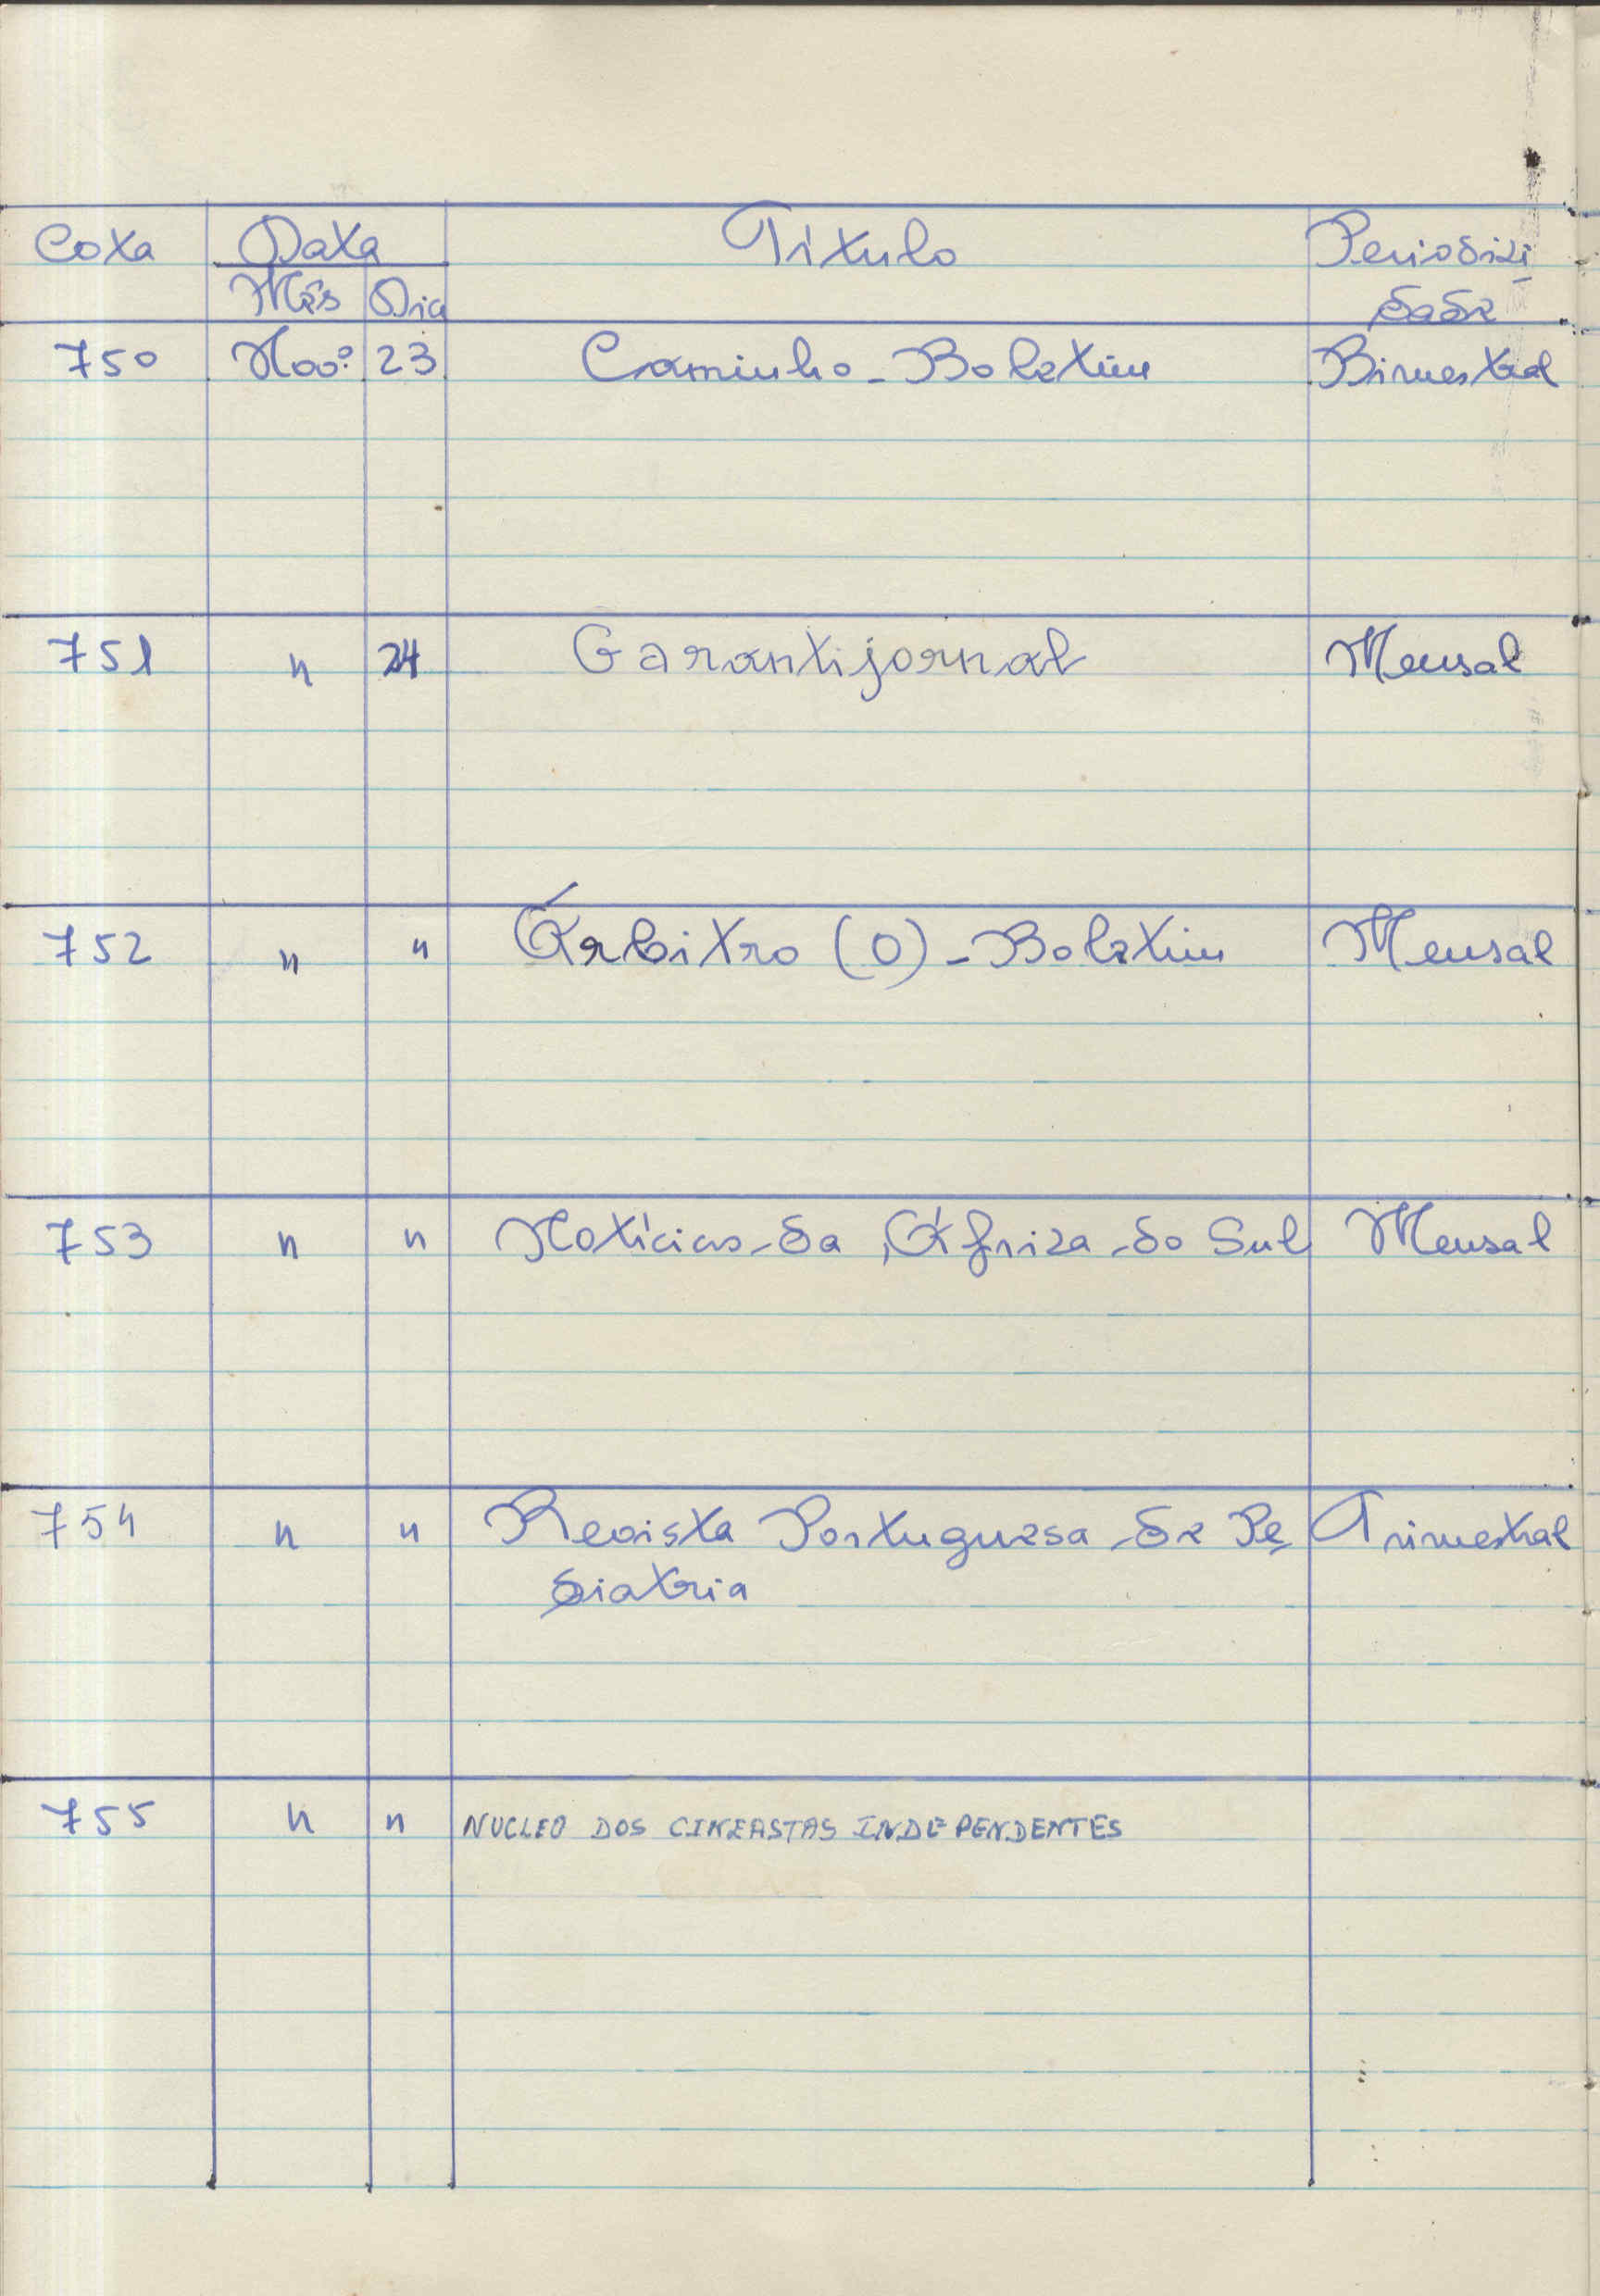 Cota Data Título Periodici
Mês Dia dade
750 Nov.º 23 Caminho - Boletim Bimestral
751 " 24 Garantijornal Mensal
752 " " Árbitro (O) - Boletim Mensal
753 " " Notícias da África do Sul Mensal
754 " " Revista Portuguesa de Pe Trimestral
diatria
755 " " NUCLEO DOS CINEASTAS INDEPENDENTES